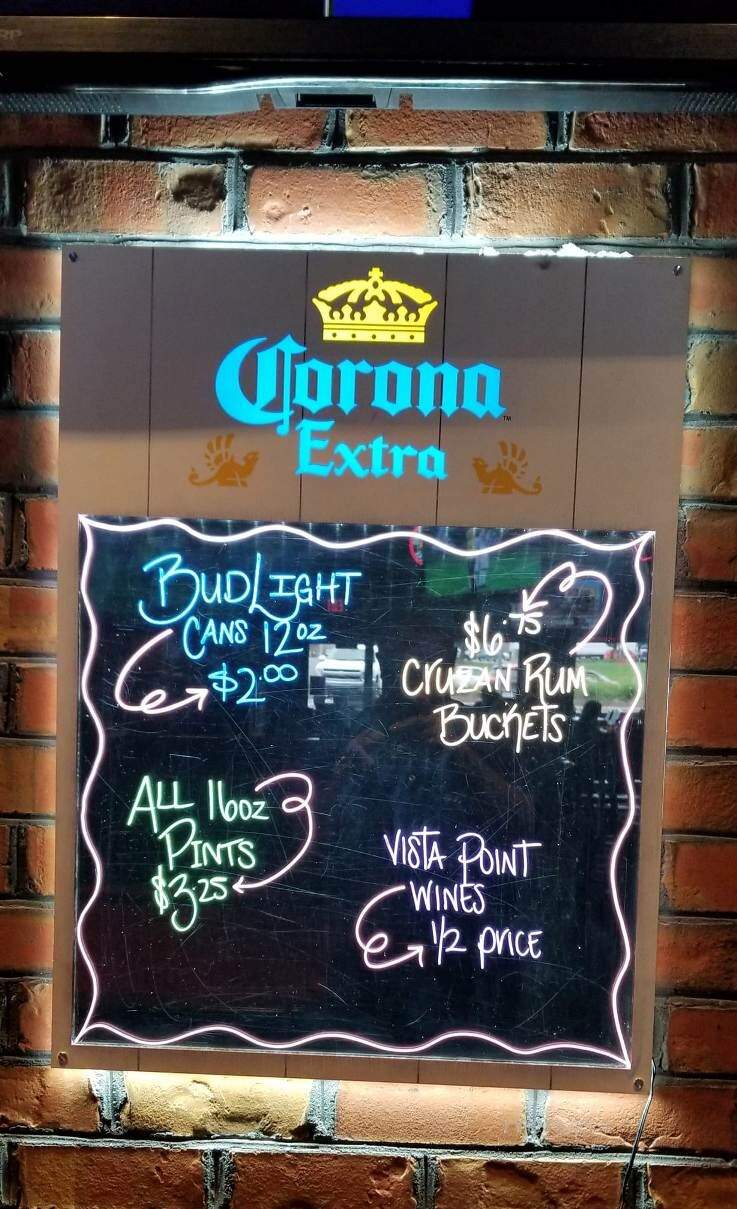 Corona
Extra
BUD LIGHT
CANS 12oz
$2.00
$6.75
CRUZAN RUM
BUCKETS
ALL 16oz
PINTS
$3.25
VISTA POINT
WINES
1/2 PRICE